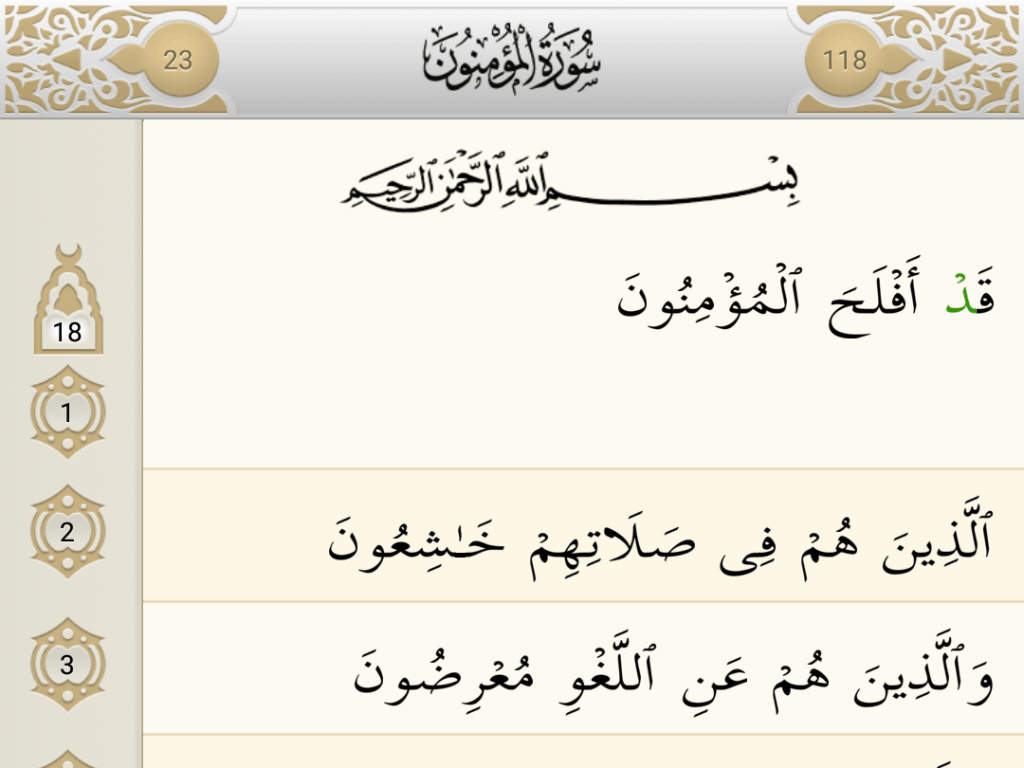 23
سُورَةُ الْمُؤْمِنُونَ
118
بِسْمِ ٱللَّهِ ٱلرَّحْمَٰنِ ٱلرَّحِيمِ
18
1
قَدْ أَفْلَحَ ٱلْمُؤْمِنُونَ
2
ٱلَّذِينَ هُمْ فِى صَلَاتِهِمْ خَـٰشِعُونَ
3
وَٱلَّذِينَ هُمْ عَنِ ٱللَّغْوِ مُعْرِضُونَ